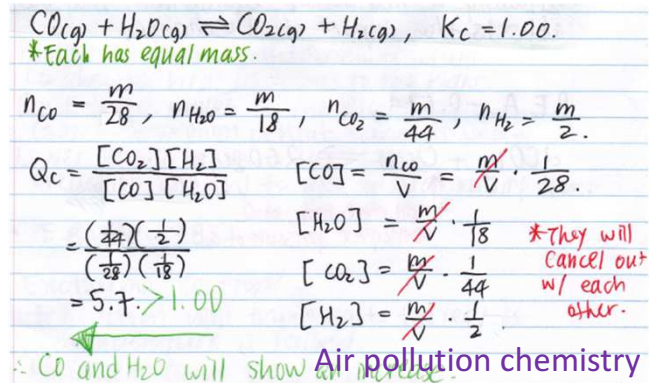 CO(g) + H2O(g) ⇌ CO2(g) + H2(g), Kc = 1.00.
*Each has equal mass.
nCO = m/28, nH2O = m/18, nCO2 = m/44, nH2 = m/2.
Qc = [CO2][H2]/[CO][H2O]
[CO] = nco/V = m/V · 1/28.
= (1/44)(1/2)/(1/28)(1/18)
[H2O] = m/V · 1/18
= 5.7. > 1.00
[CO2] = m/V · 1/44
[H2] = m/V · 1/2
*They will
cancel out
w/ each
other.
∴ CO and H2O will show an increase.
Air pollution chemistry